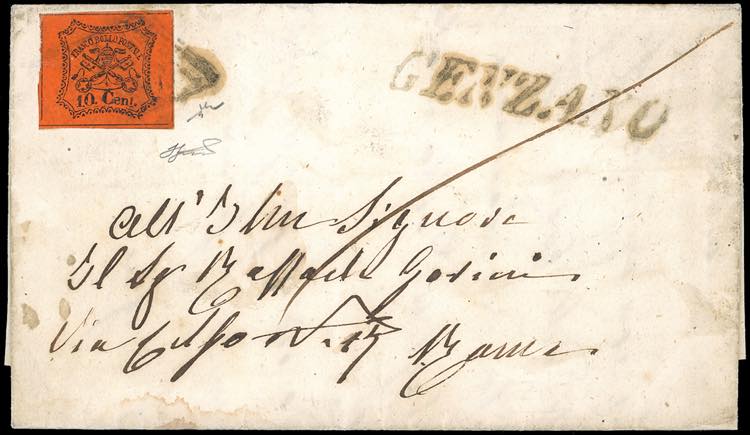 FRANCO BOLLO POSTALE
10. Cent.
GENZANO
All' Ill̃u Signore
Il Sg Raffaele
Via N. 17 Roma